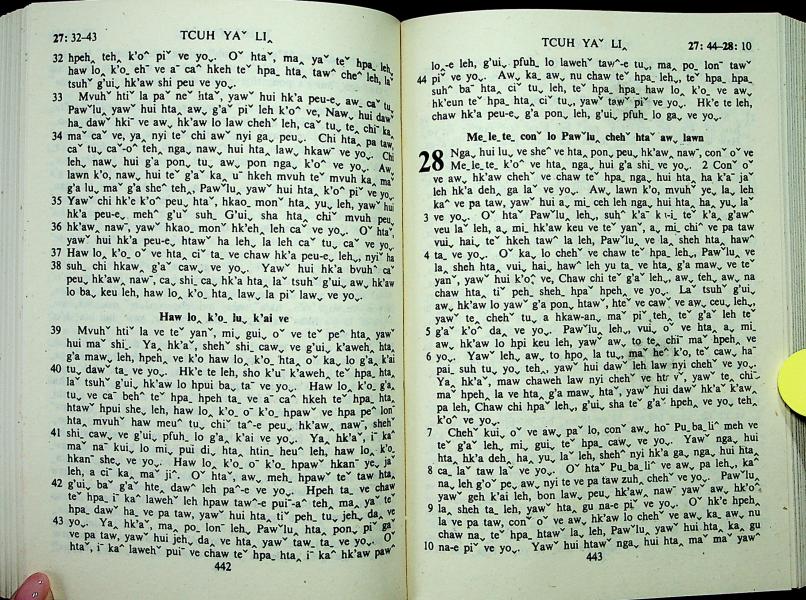 27: 32-43 TCUH YAˇ LI‸
32 hpeh‸ teh‸ k'o^ piˇ ve yo⌄. Oˇ htaˇ, ma‸ yaˇ teˇ hpa_ leh‸
haw lo‸ k'o‸ ehˉ ve aˉ caˆ hkeh teˇ hpa_ hta‸ tawˆ cheˆ leh, laˇ
tsuhˇ g'ui‸ hk'aw shi peu ve yo⌄.
33 Mvuhˇ htiˇ la paˇ neˇ htaˇ, yawˇ hui hk'a peu-e‸ aw_ caˇ tu‸
Paw⌄lu‸ yawˇ hui hta‸ aw‸ g'aˇ piˇ leh k'oˆ ve, Naw‸ hui dawˇ
ha_ dawˇ hkiˇ ve aw‸ hk'aw lo law chehˇ leh, caˇ tu‸ te‸ chiˇ ka‸
34 maˇ caˇ ve, ya‸ nyi teˇ chi aw nyi ga‸ peu⌄. Chi hta‸ pa taw
caˇ tu‸ caˇ-oˆ teh‸ nga‸ naw‸ hui hta‸ law‸ hkawˇ ve yo⌄. Chi
leh‸ naw‸ hui g'a pon‸ tu‸ aw‸ pon nga‸ k'oˆ ve yo⌄. Aw‸
lawn k'o‸ naw‸ hui teˇ g'aˇ ka‸ uˉ hkeh mvuh teˇ mvuh ka‸ maˇ
g'a lu‸ maˇ g'a sheˇ teh‸ Paw⌄luˇ yawˇ hui hta‸ k'oˆ piˇ ve yo⌄
35 Yawˇ chi hk'e k'oˆ peu‸ htaˇ, hkao_ monˇ hta‸ yu‸ leh, yawˇ hui
hk'a peu-e‸ mehˇ g'uˇ suh_ G'ui‸ sha hta‸ chiˇ mvuh peu‸
36 hk'aw‸ nawˇ, yawˇ hkao_ monˇ hk'eh‸ leh caˇ ve yo⌄. Oˇ htaˇ,
yawˇ hui hk'a peu-e‸ htawˇ ha leh‸ la leh caˇ tu‸ caˇ ve yo⌄.
37 Haw lo‸ k'o‸ oˇ ve hta‸ ciˇ ta_ ve chaw hk'a peu-e‸ leh‸, nyiˇ ha
38 suh_ chi hkaw‸ g'aˇ caw‸ ve yo⌄. Yawˇ hui hk'a bvuhˇ caˇ
peu‸ hk'aw‸ nawˇ, ca_ shi_ ca‸ hk'a hta‸ laˇ tsuhˇ g'ui‸ aw‸ hk'aw
lo ba‸ keu leh, haw lo‸ k'o‸ hta‸ law‸ la piˇ law‸ ve yo⌄.
Haw lo‸ k'o‸ lu‸ k'ai ve
39 Mvuhˇ htiˇ la ve teˇ yanˇ, mi‸ gui‸ oˇ ve teˇ peˆ hta‸ yawˇ
hui maˇ shi_. Ya‸ hk'aˇ, shehˇ shi_ caw‸ ve g'ui‸ k'aweh‸ hta‸
g'a maw leh, hpeh‸ ve k'o haw lo‸ k'o‸ hta‸ oˇ ka‸ lo g'a‸ k'ai
40 tu‸ dawˇ ta_ ve yo⌄. Hk'e te leh, sho k'uˇ k'aweh‸ teˇ hpa_ hta‸
laˇ tsuhˇ g'ui‸ hk'aw lo hpui ba‸ taˉ ve yo⌄. Haw lo‸ k'o‸ g'a‸
tu‸ ve caˇ behˆ teˇ hpa_ hpeh ta_ ve aˉ caˆ hkeh teˇ hpa_ hta‸
htawˇ hpui she‸ leh, haw lo‸ k'o‸ oˉ k'o‸ hpawˇ ve hpa peˆ lonˇ
hta‸ mvuhˇ haw meuˆ tu‸ chiˇ taˆ-e peu‸ hk'aw‸ nawˇ, shehˇ
41 shi_ caw‸ ve g'ui‸ pfuh_ lo g'a‸ k'ai ve yo⌄. Ya‸ hk'aˇ, iˉ kaˆ
maˇ naˉ kui‸ lo mi‸ pui di‸ hta‸ htin_ heuˆ leh, haw lo‸ k'o‸
hkanˇ she‸ ve yo⌄. Haw lo‸ k'o‸ oˉ k'o‸ hpawˇ hkanˇ ye‸ jaˇ
leh, a ciˇ ka‸ maˇ jiˆ. Oˇ htaˇ, aw‸ meh_ hpawˇ teˇ taw hta‸
42 g'ui‸ baˇ g'aˆ hte‸ dawˇ leh paˆ-e ve yo⌄. Hpeh ta_ ve chaw
teˇ hpa_ iˉ kaˆ laweh leh hpaw tawˆ-e puiˉ-aˆ teh‸ ma‸ yaˇ teˇ
hpa_ dawˇ ha_ ve pa taw, yawˇ hui hta‸ tiˇ peh_ tu‸ jeh‸ da‸ ve
43 yo⌄. Ya‸ hk'aˇ, ma‸ po_ lonˇ leh‸ Paw⌄luˇ hta‸ pon‸ piˇ gaˇ
ve pa taw, yawˇ hui jeh‸ da‸ ve hta‸ yawˇ taw_ ta_ ve yo⌄. Oˇ
htaˇ, iˉ kaˆ lawehˇ puiˉ ve chaw teˇ hpa_ hta‸ iˉ kaˆ hk'aw pawˇ
442
TCUH YAˇ LI‸ 27: 44–28: 10
lo‸-e leh, g'ui‸ pfuh_ lo lawehˇ tawˆ-e tu⌄, ma‸ po_ lonˉ tawˇ
44 piˇ ve yo⌄. Aw‸ ka_ aw‸ nu chaw teˇ hpa_ leh⌄, teˇ hpa_ hpa_
suhˆ baˇ hta‸ ciˇ tu‸ leh, teˇ hpa_ hpa_ haw lo‸ k'o‸ ve aw‸
hk'eun teˇ hpa_ hta‸ ciˇ tu‸, yawˇ tawˇ piˇ ve yo⌄. Hk'e te leh,
chaw hk'a peu-e‸ g'a pon‸ leh, g'ui‸ pfuh_ lo ga‸ ve yo⌄.
Me_le_te_ conˇ lo Paw⌄lu‸ chehˇ htaˇ aw‸ lawn
28 Nga‸ hui lu‸ ve sheˆ ve hta‸ pon‸ peu‸ hk'aw‸ nawˇ, conˇ oˇ ve
Me_le_te_ k'oˆ ve hta‸ nga‸ hui g'a shi_ ve yo⌄. 2 Conˇ oˇ
ve aw‸ hk'aw chehˇ ve chaw teˇ hpa_ nga‸ hui hta‸ ha k'aˇ jaˇ
leh hk'a deh‸ ga laˇ ve yo⌄. Aw‸ lawn k'o‸ mvuhˇ ye‸ la‸ leh
kaˆ ve pa taw, yawˇ hui a_ mi_ ceh leh nga‸ hui hta‸ ha‸ yu‸ laˇ
3 ve yo⌄. Oˇ htaˇ Paw⌄lu‸ leh⌄, suhˆ k'aˇ teˇ k'a‸ g'awˆ
veu la veˇ leh, a_ mi_ hk'aw keu ve teˇ yanˇ, a_ mi_ chiˆ ve pa taw
vui‸ hai‸ teˇ hkeh tawˆ la leh, Paw⌄lu‸ ve la‸ sheh hta‸ hawˆ
4 ta_ ve yo⌄. Oˇ ka‸ lo chehˇ ve chaw te hpa_ leh‸, Paw⌄lu‸ ve
la‸ sheh hta‸ vui‸ hai‸ hawˆ leh yu ta_ ve hta‸ g'a maw‸ ve teˇ
yanˇ, yawˇ hui k'oˆ ve, Chaw chi teˇ g'aˇ leh‸, aw‸ teh‸ aw‸ na
chaw hta‸ tiˇ peh_ sheh_ hpaˇ hpehˇ ve yo⌄. Laˇ tsuhˇ g'ui‸
aw‸ hk'aw lo yawˇ g'a pon‸ htawˇ, hteˇ ve cawˇ ve aw‸ ceu‸ leh⌄,
yawˇ te_ chehˇ tu‸ a hkaw-an‸ maˇ piˇ teh‸ teˇ g'aˇ leh teˇ
5 g'aˇ k'oˆ da‸ ve yo⌄. Paw⌄lu‸ leh⌄, vui‸ oˇ ve hta‸ a_ mi_
aw‸ hk'aw lo hpi keu leh, yawˇ aw‸ to te‸ chiˇ maˇ hpeh‸ ve
6 yo⌄. Yawˇ leh‸ aw‸ to hpo_ la tu⌄, maˇ heˆ k'o‸ teˇ caw‸ haˉ
pai_ suh tu‸ yo‸ teh‸, yawˇ hui dawˇ leh law nyi chehˇ ve yo⌄.
Ya‸ hk'aˇ, maw chaweh law nyi chehˇ ve htaˇ, yawˇ te_ chiˇ
maˇ hpeh‸ la ve hta‸ g'a maw‸ htaˇ, yawˇ hui dawˇ hk'aˇ k'aw‸
pa leh, Chaw chi hpaˇ leh⌄, g'ui‸ sha teˇ g'aˇ hpeh‸ ve yo‸ teh‸
k'oˆ ve yo⌄.
7 Chehˇ kui‸ oˇ ve aw‸ paˇ lo‸ conˇ aw‸ hoˉ Pu_ba_liˆ meh ve
teˇ g'aˇ leh‸ mi_ gui‸ teˇ hpa_ caw‸ ve yo⌄. Yawˇ nga‸ hui
hta‸ hk'a deh‸ ha‸ yu‸ laˇ leh, shehˆ nyi hk'a ga‸ nga‸ hui hta‸
8 ca‸ laˇ taw laˇ ve yo⌄. Oˇ htaˇ Pu_ba_liˆ ve aw‸ pa leh‸, kaˆ
na‸ leh g'oˇ pe‸ aw‸ nyi te ve pa taw zuh‸ chehˇ ve yo⌄. Paw⌄lu‸
yawˇ geh k'ai leh, bon lawˇ peu‸ hk'aw‸ nawˇ yawˇ aw‸ hk'oˆ
9 la‸ sheh ta_ leh, yawˇ hta‸ gu na-e piˇ ve yo⌄. Oˇ hk'e hpeh‸
la ve pa taw, conˇ oˇ ve aw‸ hk'aw lo chehˇ ve aw‸ ka_ aw‸ nu
chaw na‸ teˇ hpa_ htawˇ la leh, Paw⌄lu‸ yawˇ hui hta‸ ka‸ gu
10 na-e piˇ ve yo⌄. Yawˇ hui htawˇ nga‸ hui hta‸ maˇ maˇ yawˆ
443